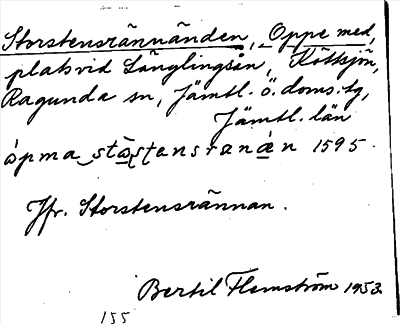 Storstensrännänden, Oppe med,
plats vid Långlingsån, Köttsjön,
Ragunda sn, Jämtl. ö. doms. tg,
Jämtl. län
1595.
Jfr. Storstensrännan.
Bertil Flemström 1953.
155